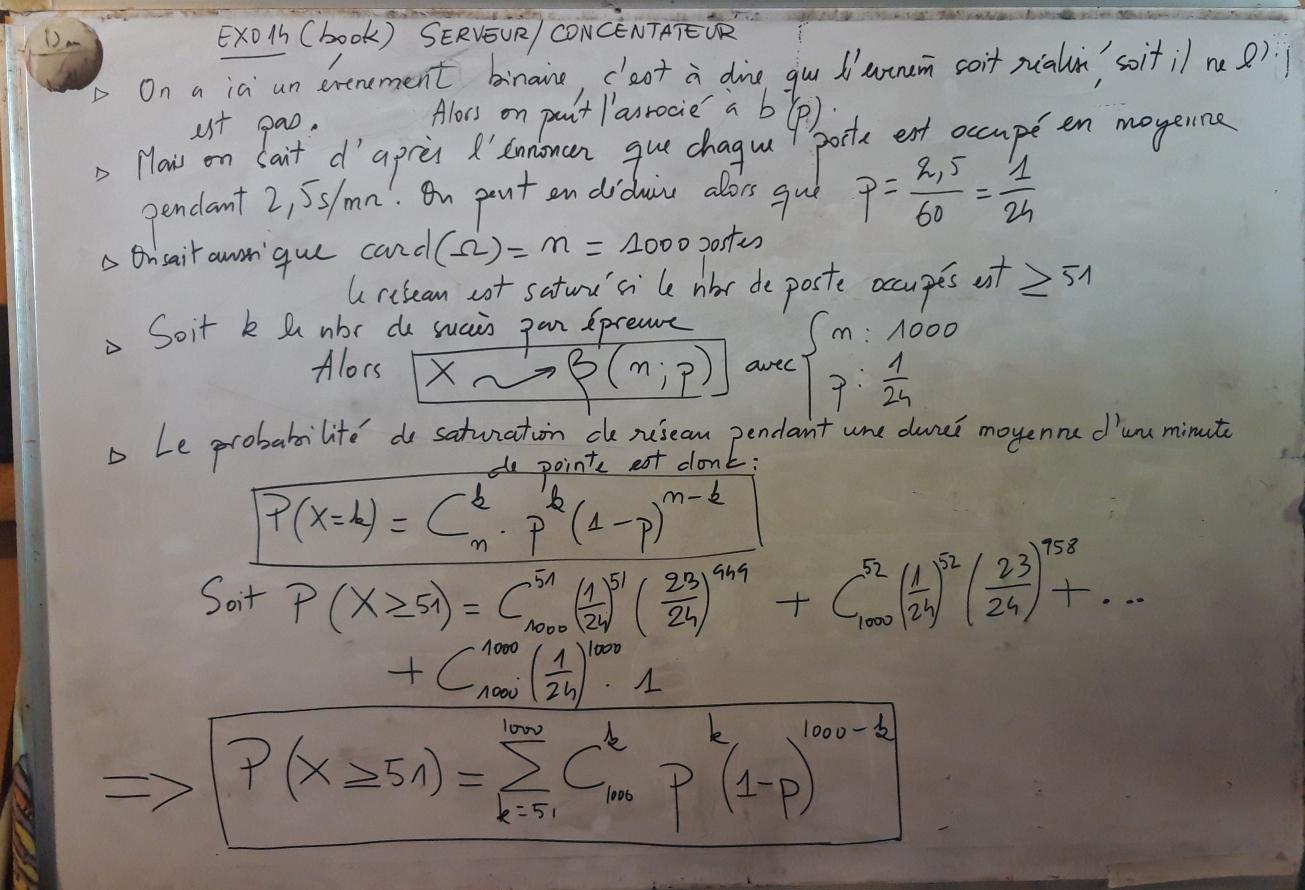 EXO14 (book) SERVEUR/CONCENTATEUR
▷ On a ici un évenement binaire, c'est à dire que l'evenem̄ soit réalisé, soit il ne l'
est pas. Alors on peut l'associé à b(p).
▷ Mais on sait d'après l'énnoncer que chaque poste est occupé en moyenne
pendant 2,5s/mn. On peut en déduire alors que p = 2,5/60 = 1/24
▷ On sait aussi que card(Ω) = n = 1000 postes
le réseau est saturé si le nbr de poste occupés est ≥ 51
▷ Soit k le nbr de succès par épreuve
Alors X ⤳ β(n;p) avec { n : 1000
p : 1/24
▷ Le probabilité de saturation de réseau pendant une dureé moyenne d'une minute
de pointe est donc :
P(X=k) = C_n^k . p^k (1-p)^{n-k}
Soit P(X≥51) = C_{1000}^{51} (1/24)^{51} (23/24)^{949} + C_{1000}^{52} (1/24)^{52} (23/24)^{958} + ...
+ C_{1000}^{1000} (1/24)^{1000} . 1
⇒ P(X≥51) = Σ_{k=51}^{1000} C_{1000}^k p^k (1-p)^{1000-k}